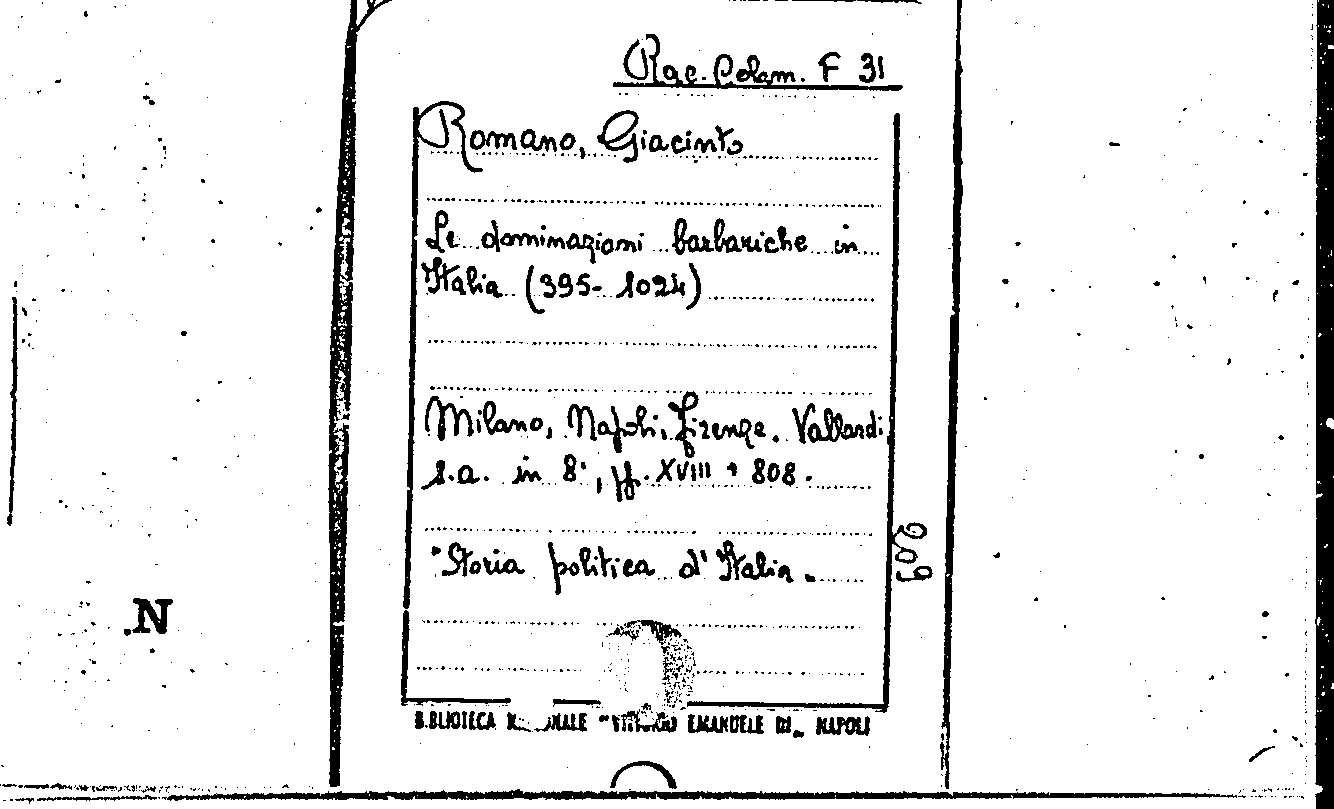 Rac. Colam. F 31
Romano, Giacinto
Le dominazioni barbariche in
Italia (395-1024)
Milano, Napoli, Firenze. Vallardi
s.a. in 8°, pp. XVIII + 808.
"Storia politica d'Italia"
209
.N
BIBLIOTECA NAZIONALE "VITTORIO EMANUELE III" NAPOLI